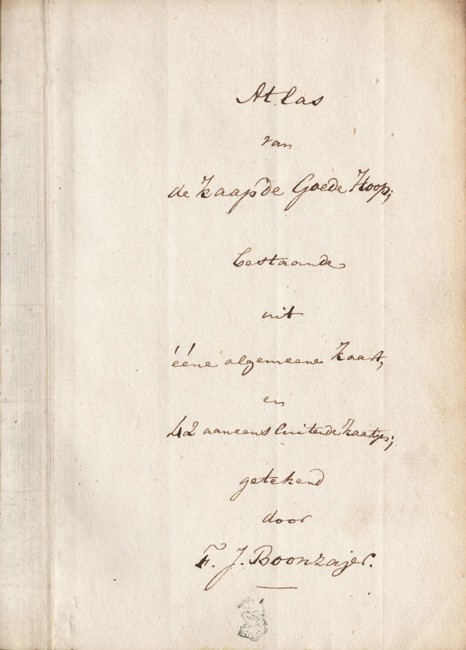 Atlas
van
de Kaap de Goede Hoop;
bestaande
uit
ééne algemeene Kaart,
en
42 aaneensluitende Kaartjes;
getekend
door
F. J. Boonzajer.